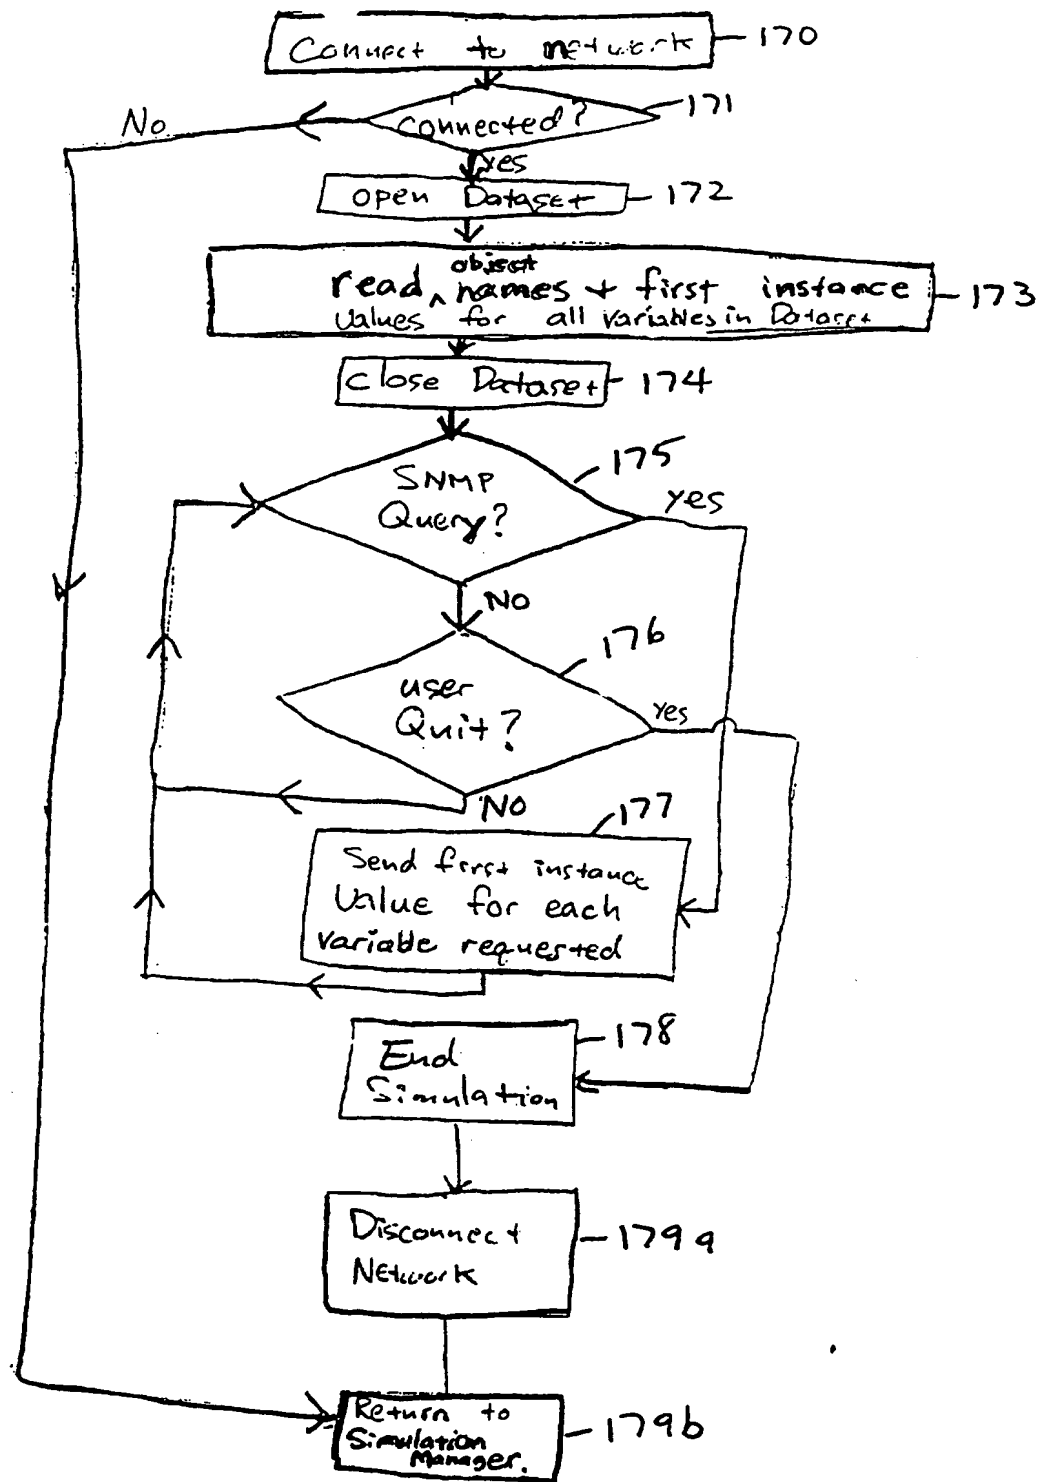 Connect to network
170
171
No
connected?
yes
open Dataset
172
object
read ^ names + first instance
values for all variables in Dataset
173
close Dataset
174
175
SNMP
Query?
yes
NO
176
user
Quit?
yes
NO
177
Send first instance
value for each
variable requested
178
End
Simulation
Disconnect
Network
179a
Return to
Simulation
Manager.
179b